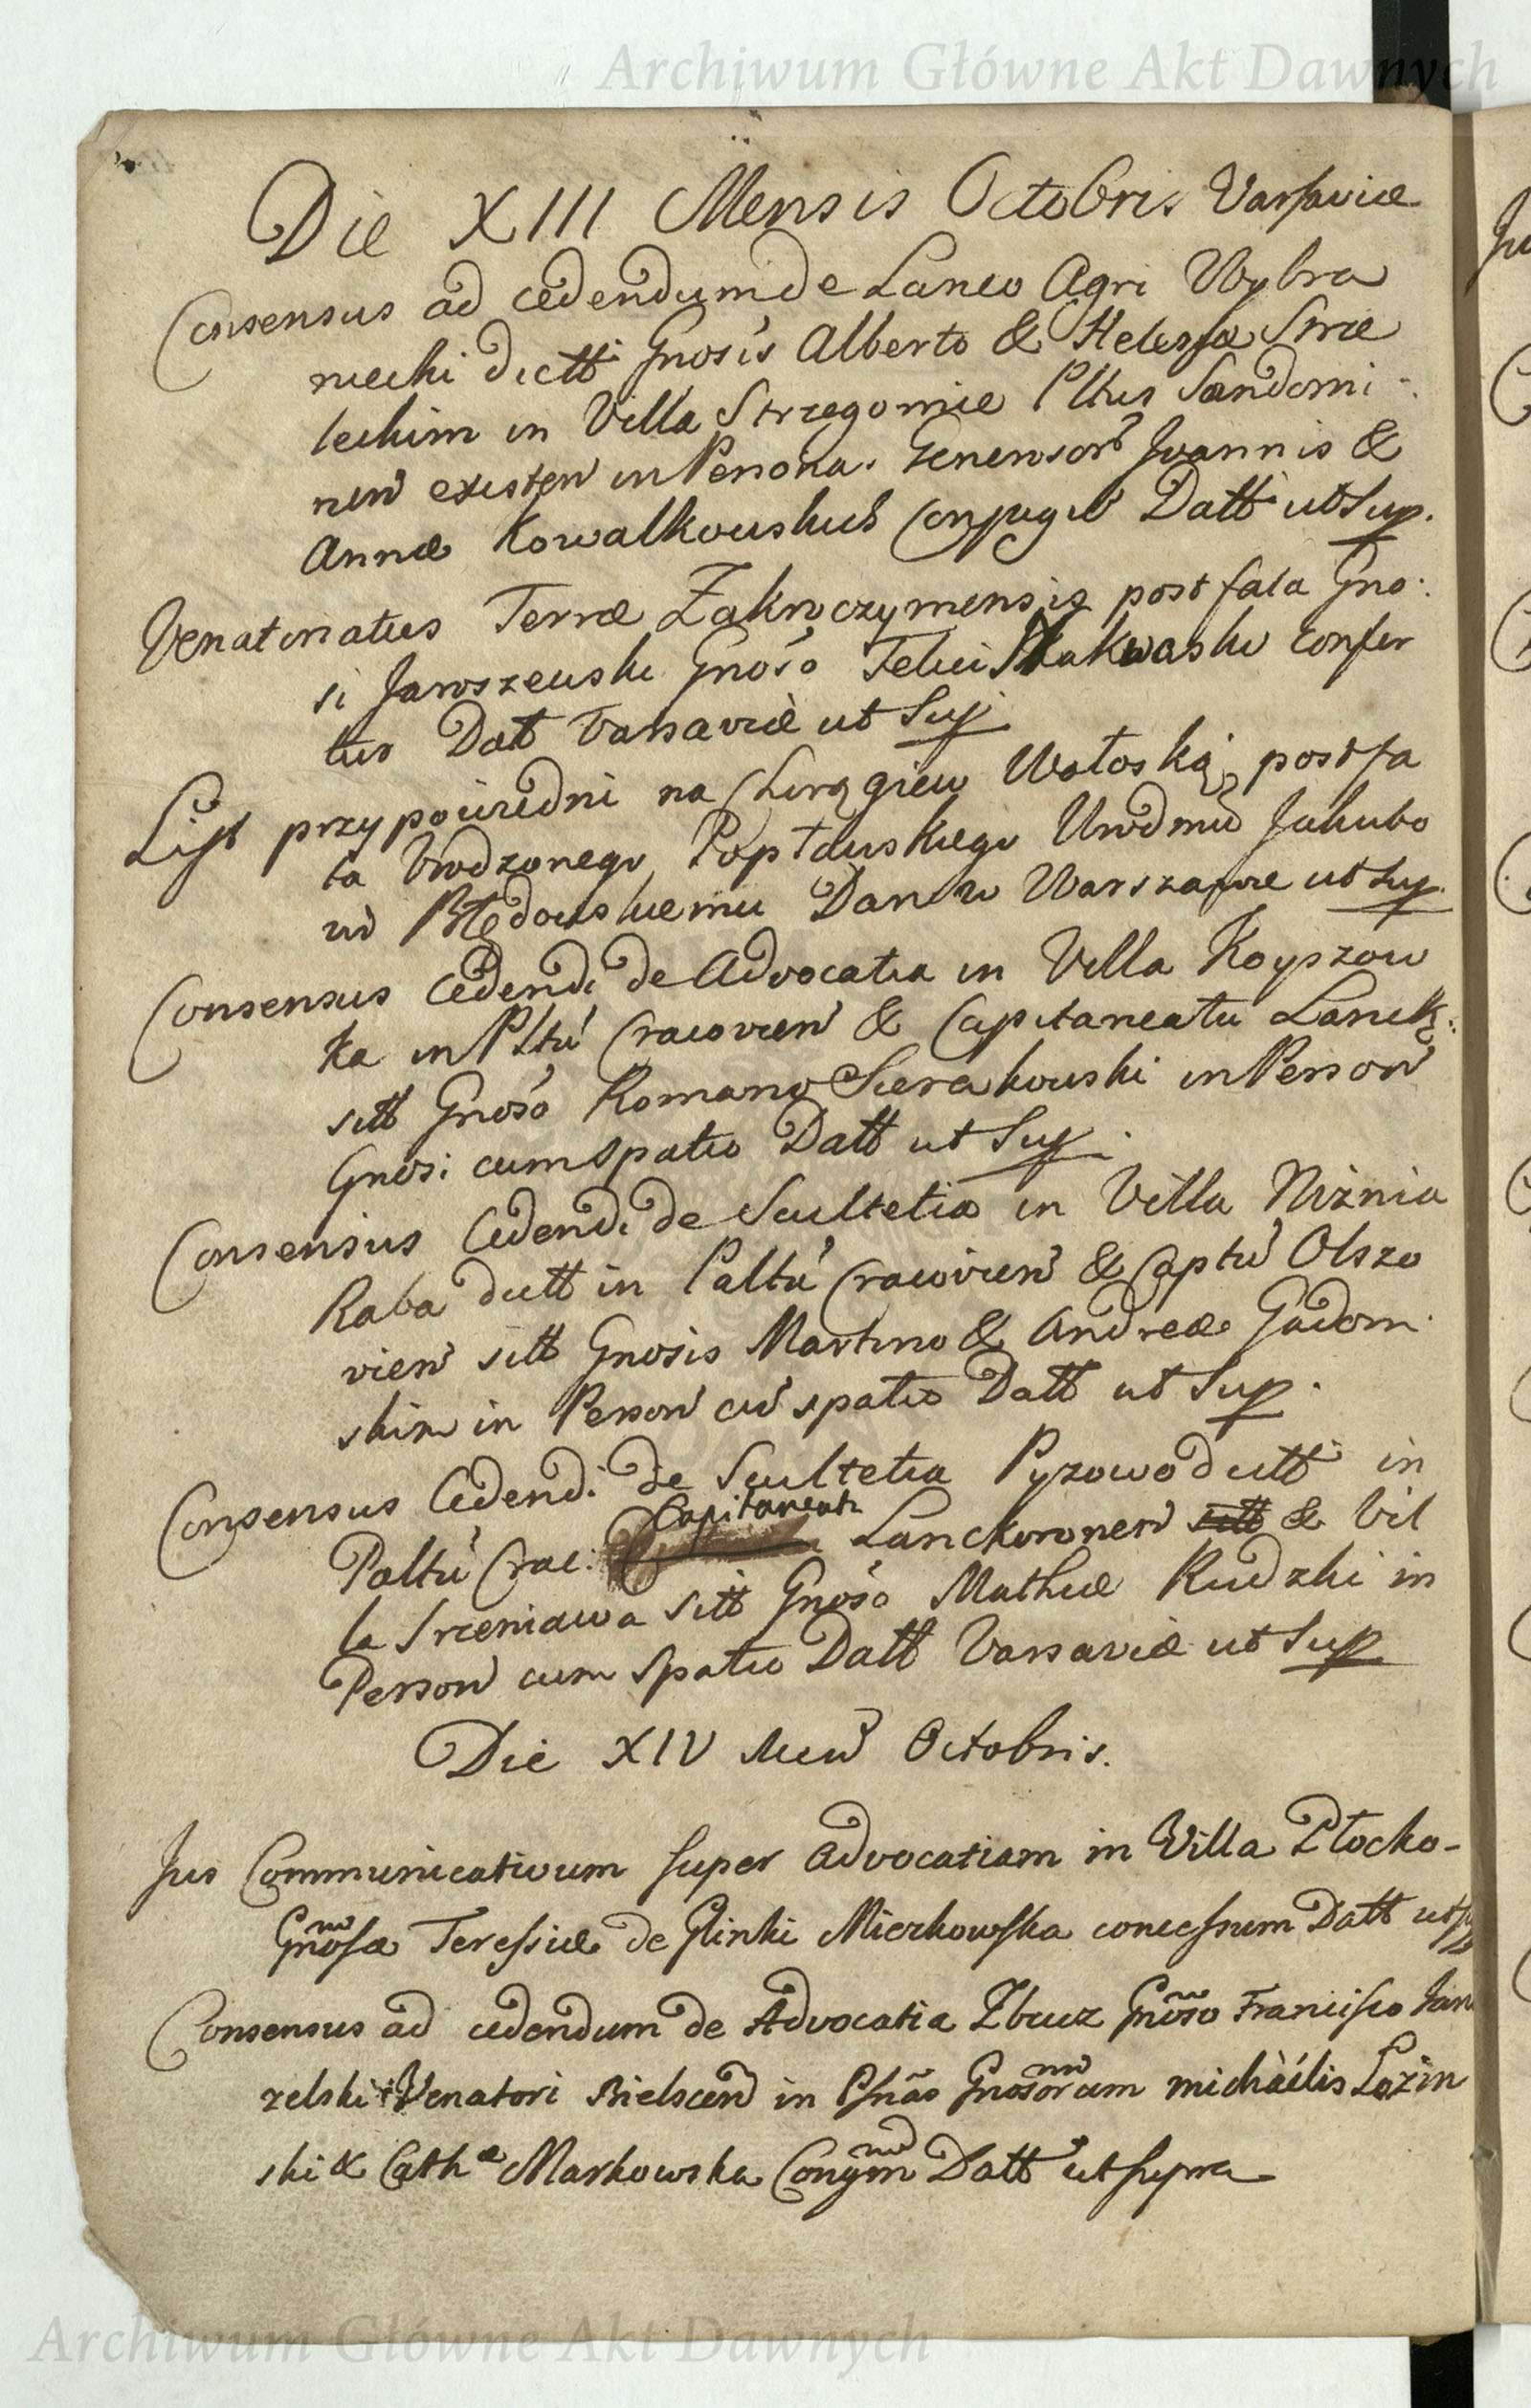 Archiwum Główne Akt Dawnych
Die XIII Mensis Octobris Varsaviæ
Consensus ad cedendum de Laneo Agri Wybra
niecki dictt Gnosis Alberto & Helenæ Strze
leckim in Villa Strzegomie Pltus Sandomi:
rien existen in Persona. Generosor Joannis &
Annæ Kowalkouskich Conjugu Datt ut Sup.
Venatoriatus Terræ Zakroczymensis post fata Gno:
si Jaroszeuski Gnoso Felici Skakwaski confer
tur Dat Varsaviæ ut Sup
List przypowiedni na Churągiew Wołoską, post fa
ta Urodzonego Popławskiego Urodmu Jakubo
wi Błędowskiemu Dan w Warszawie ut Sup.
Consensus Cedendi de Advocatia in Villa Koyszow
ka in Pltu Cracovien & Capitaneatu Lanck:
sitt Gnoso Romano Sierakouski in Person
Gnosi cum spatio Datt ut Sup.
Consensus Cedendi de Scultetia in Villa Niznia
Raba dictt in Paltu Cracovien & Captu Olszo
vien sitt Gnosis Martino & Andreæ Gadom:
skim in Person cu spatio Datt ut Sup.
Consensus Cedendi de Scultetia Pyzowo dictt in
Capitaneatu
Paltu Crac: Lanckoronen sitt & Vil
la Srzeniawa sitt Gnoso Mathiæ Rudzki in
Person cum spatio Datt Varsaviæ ut Sup
Die XIV Men Octobris.
Jus Communicativum super Advocatiam in Villa Płocko-
Gnosæ Teressiæ de Glinki Mierkowska concessum Datt ut Sup
Consensus ad cedendum de Advocatia Zbucz Gnoso Francisco Jan
zelski Venatori Bielscen in Psnas Gnosorum michaëlis Lozin
ski & Cathæ Markowska Conjym Datt ut supra
Archiwum Główne Akt Dawnych